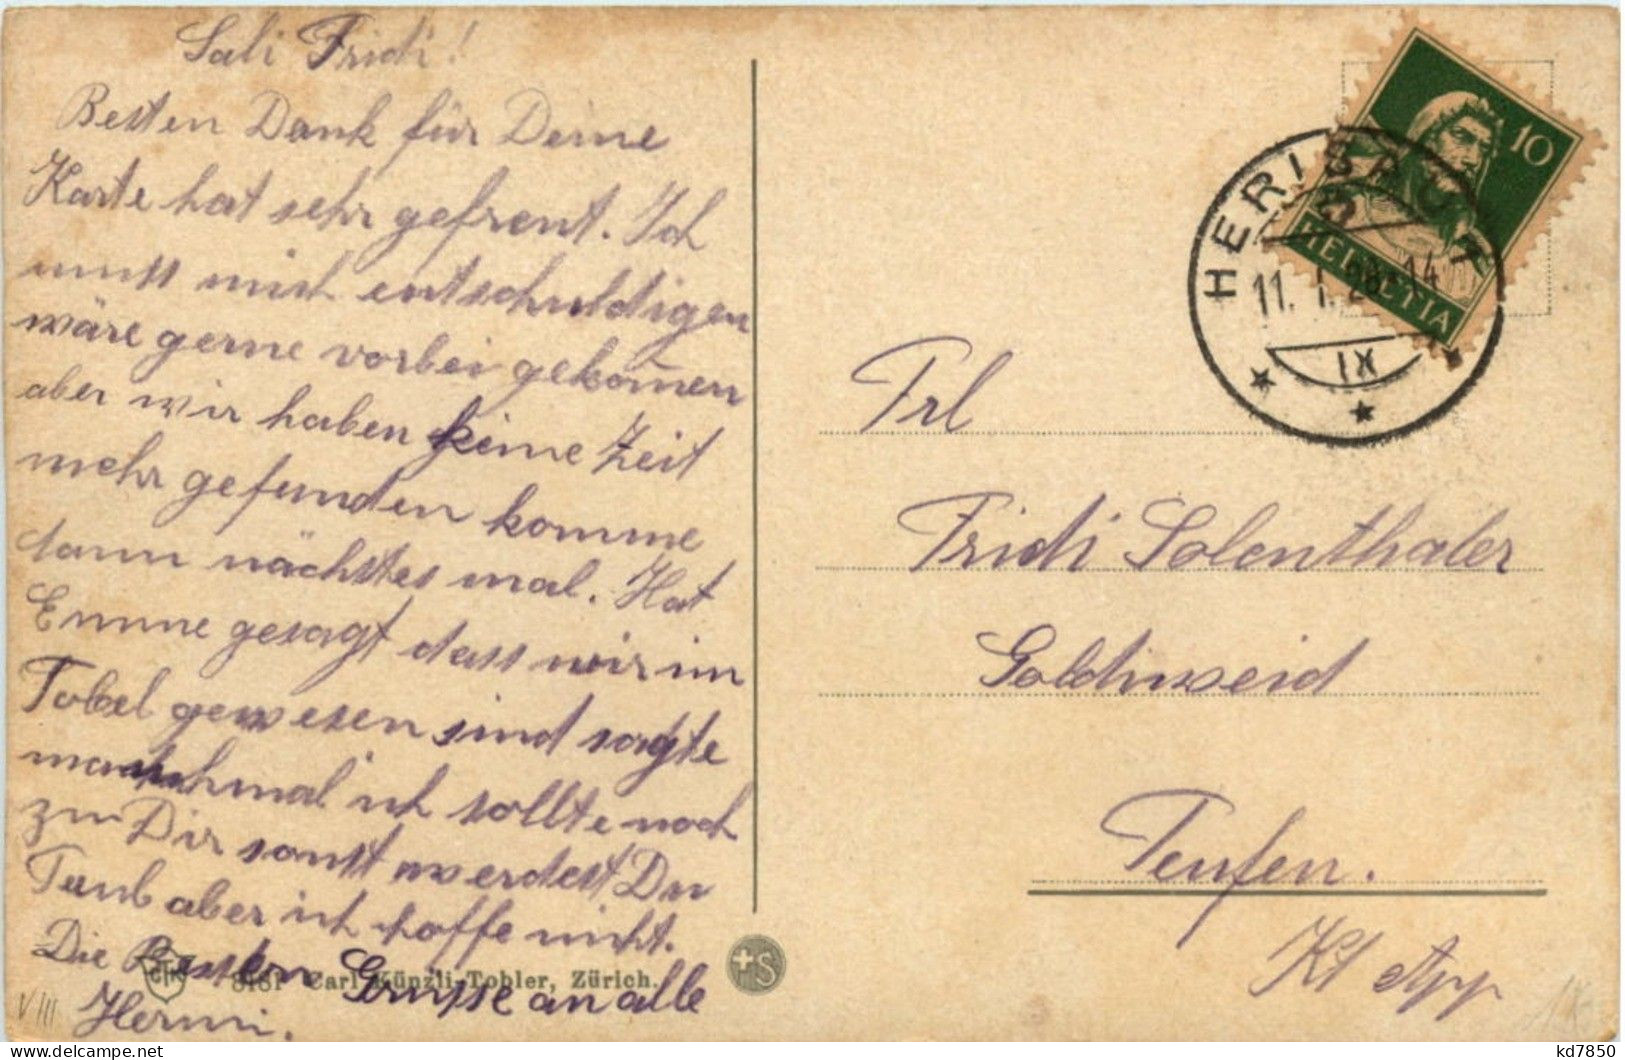 Sali Fridi!
Besten Dank für Deine
Karte hat sehr gefreut. Ich
muss mich entschuldigen
wäre gerne vorbei gekom̅en
aber wir haben keine Zeit
mehr gefunden komme
dann nächstes mal. Hat
Emme gesagt dass wir im
Tobel gewesen sind sagte
manchmal ich sollte noch
zu Dir sonst werdest Du
Taub aber ich hoffe nicht.
Die Besten Grüsse an alle
Hermi.
8181 Carl Künzli-Tobler, Zürich.
+S
VIII
10
HELVETIA
HERISAU 1
11. I. 26. 14
IX
Frl
Fridi Solenthaler
Goldiweid
Teufen.
Kt App
kd7850